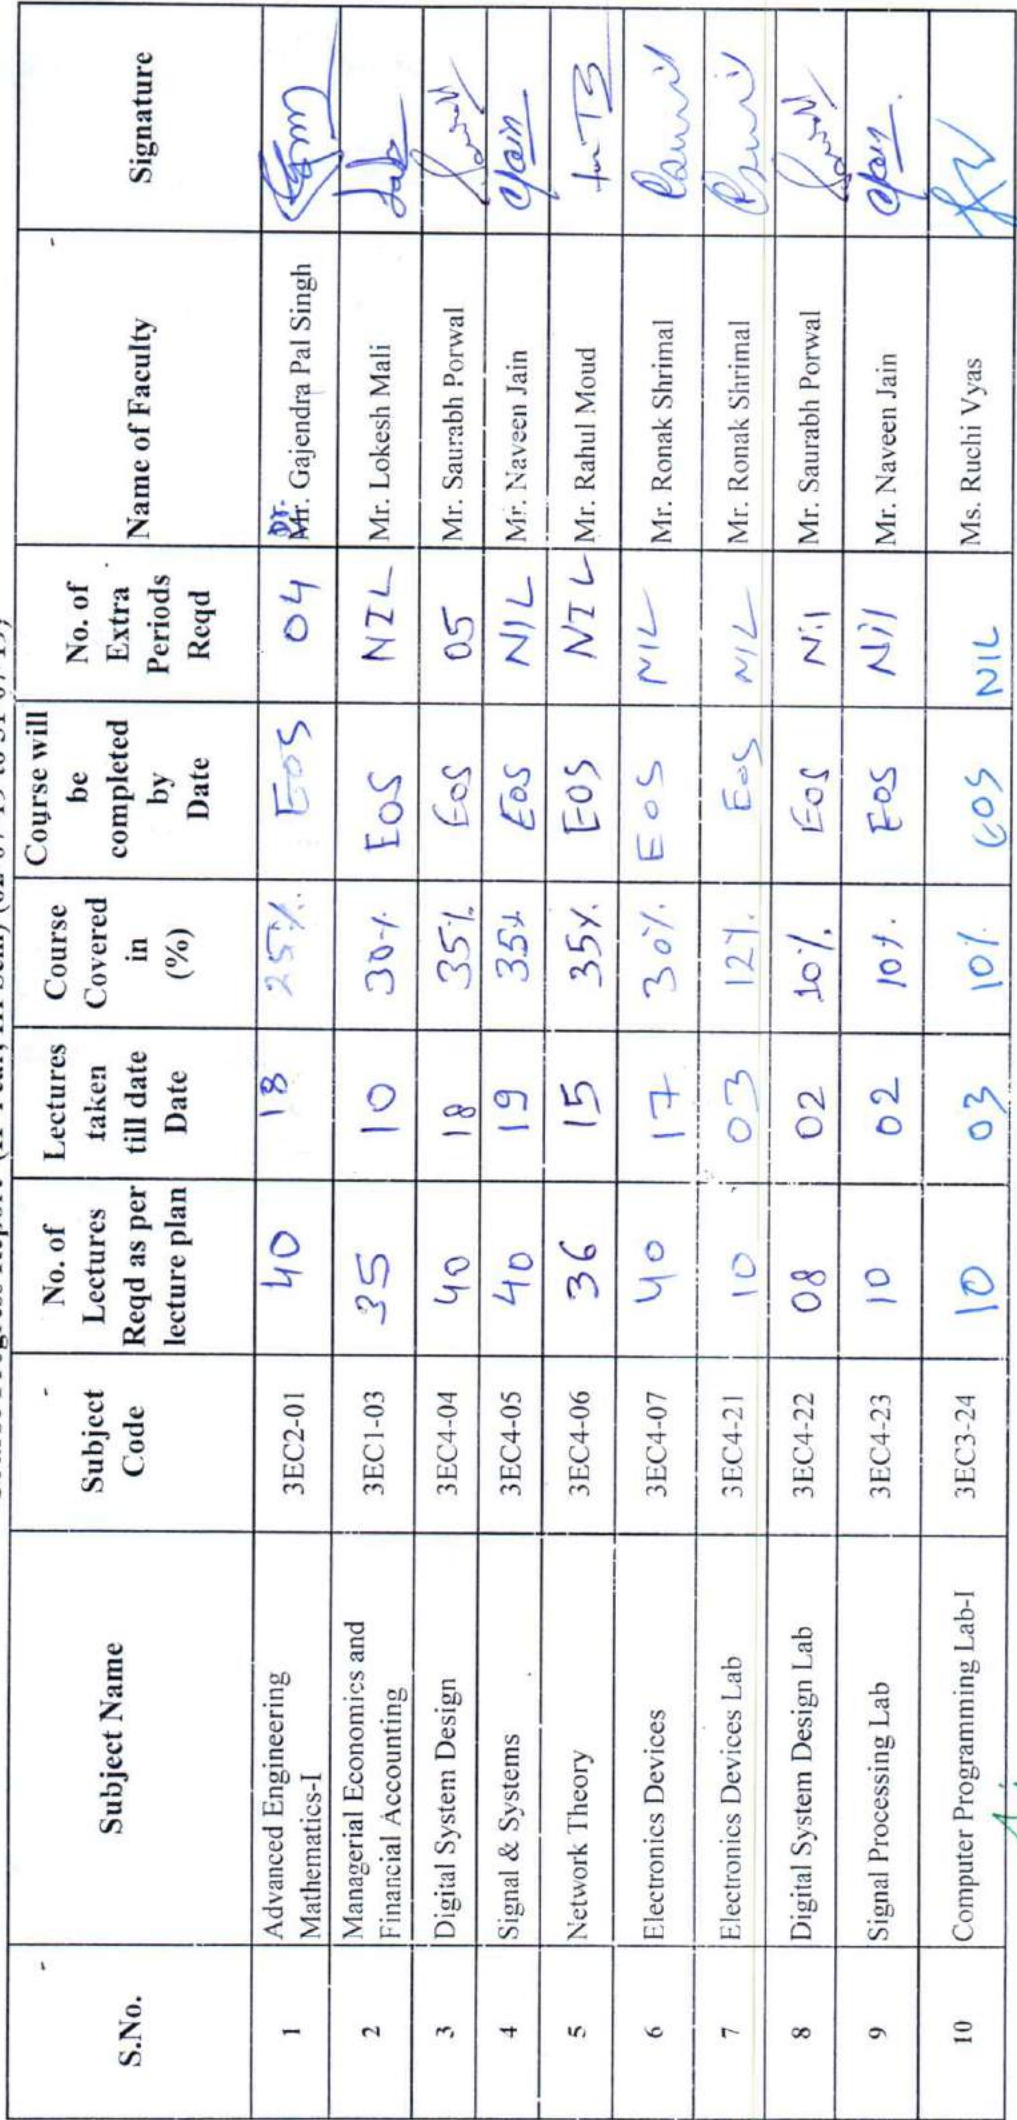 S.No.
Subject Name
Subject
Code
No. of
Lectures
Reqd as per
lecture plan
Lectures
taken
till date
Date
Course
Covered
in
(%)
Course will
be
completed
by
Date
No. of
Extra
Periods
Reqd
Name of Faculty
Signature
1
Advanced Engineering
Mathematics-I
3EC2-01
40
18
25%.
EOS
04
Dr.
Mr. Gajendra Pal Singh
2
Managerial Economics and
Financial Accounting
3EC1-03
35
10
30%
EOS
NIL
Mr. Lokesh Mali
3
Digital System Design
3EC4-04
40
18
35%
EOS
05
Mr. Saurabh Porwal
4
Signal & Systems
3EC4-05
40
19
35%
EOS
NIL
Mr. Naveen Jain
5
Network Theory
3EC4-06
36
15
35%
EOS
NIL
Mr. Rahul Moud
6
Electronics Devices
3EC4-07
40
17
30%
EOS
NIL
Mr. Ronak Shrimal
7
Electronics Devices Lab
3EC4-21
10
03
12%
EOS
NIL
Mr. Ronak Shrimal
8
Digital System Design Lab
3EC4-22
08
02
10%
EOS
Nil
Mr. Saurabh Porwal
9
Signal Processing Lab
3EC4-23
10
02
10%
EOS
Nil
Mr. Naveen Jain
10
Computer Programming Lab-I
3EC3-24
10
03
10%
EOS
NIL
Ms. Ruchi Vyas